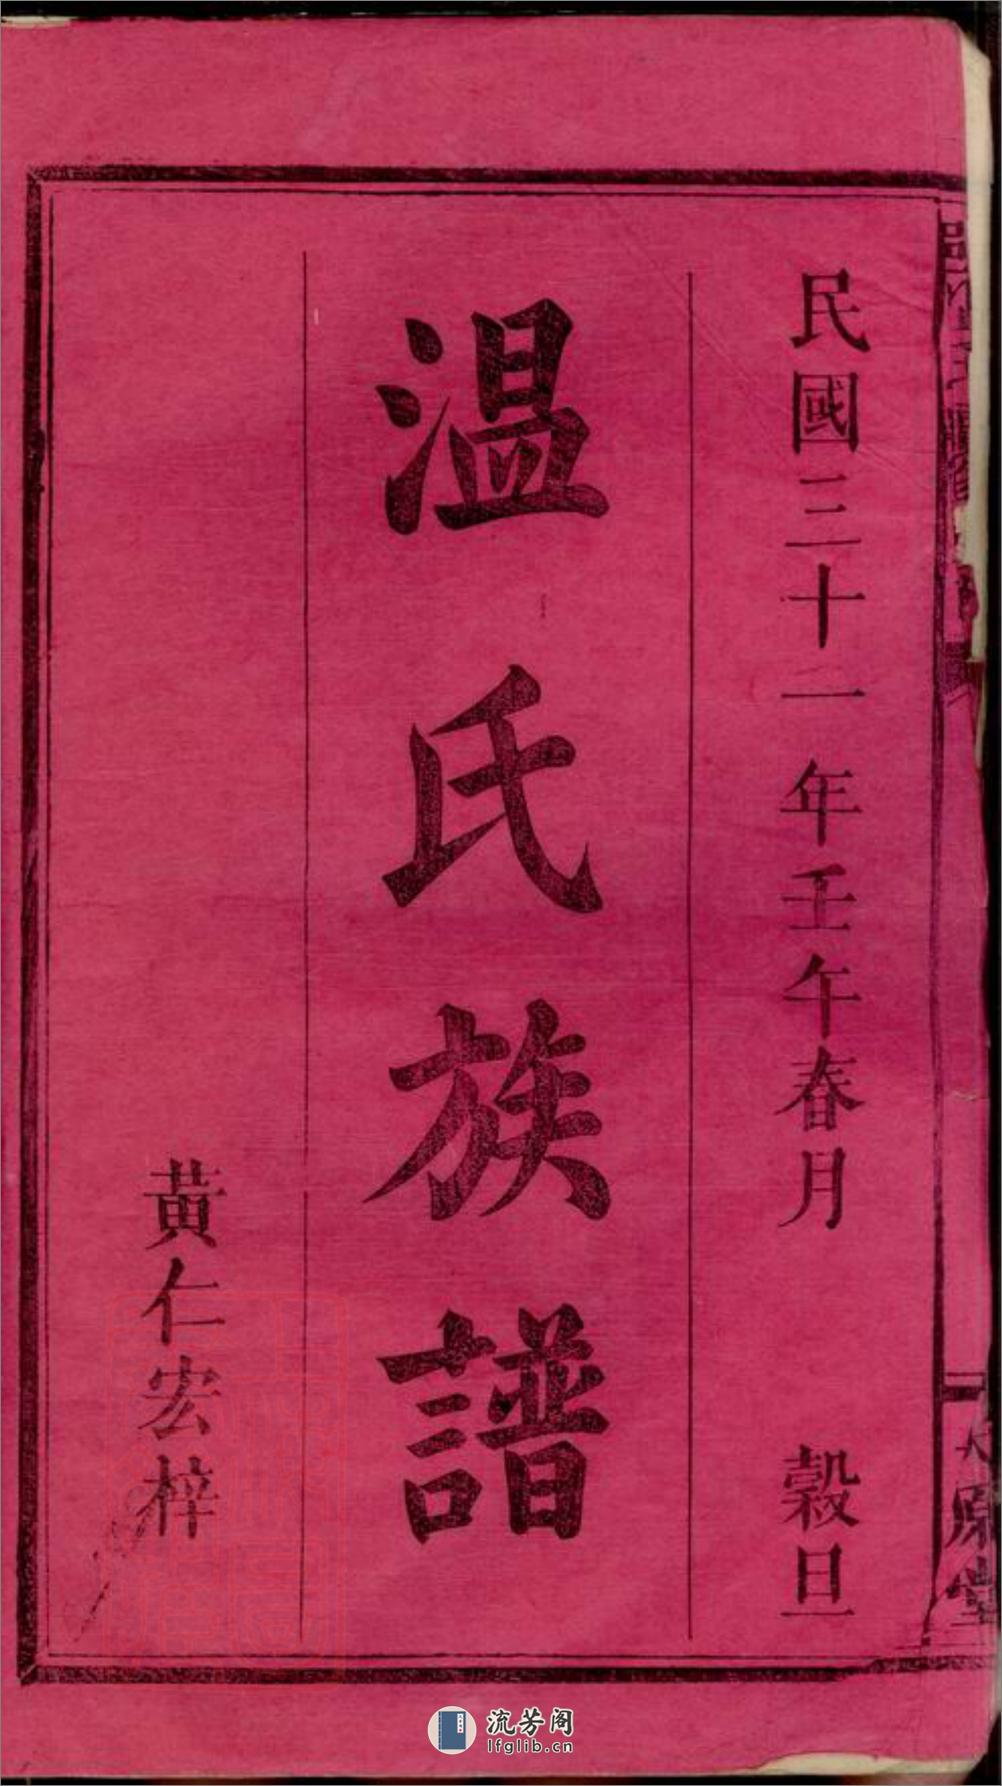 民國三十一年壬午春月 穀旦
温氏族譜
黃仁宏梓
太原堂
流芳阁
lfglib.cn